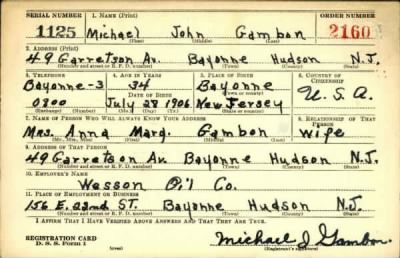 SERIAL NUMBER 1. NAME (Print) ORDER NUMBER
1125 Michael John Gambon 2160
(First) (Middle) (Last)
2. ADDRESS (Print)
49 Garretson Av. Bayonne Hudson N.J.
(Number and street or R. F. D. number) (Town) (County) (State)
3. TELEPHONE 4. AGE IN YEARS 5. PLACE OF BIRTH 6. COUNTRY OF CITIZENSHIP
Bayonne-3 34 Bayonne
DATE OF BIRTH (Town or county)
0800 July 28 1906 New Jersey U.S.A.
(Mo.) (Day) (Yr.) (State or country)
7. NAME OF PERSON WHO WILL ALWAYS KNOW YOUR ADDRESS 8. RELATIONSHIP OF THAT PERSON
Mrs. Anna Marg. Gambon wife
(Mr., Mrs., Miss) (First) (Middle) (Last)
9. ADDRESS OF THAT PERSON
49 Garretson Av. Bayonne Hudson N.J.
(Number and street or R. F. D. number) (Town) (County) (State)
10. EMPLOYER'S NAME
Wesson Oil Co.
11. PLACE OF EMPLOYMENT OR BUSINESS
156 E. 22nd ST. Bayonne Hudson N.J.
(Number and street or R. F. D. number) (Town) (County) (State)
I AFFIRM THAT I HAVE VERIFIED ABOVE ANSWERS AND THAT THEY ARE TRUE.
REGISTRATION CARD
D. S. S. Form 1 (over) Michael J Gambon